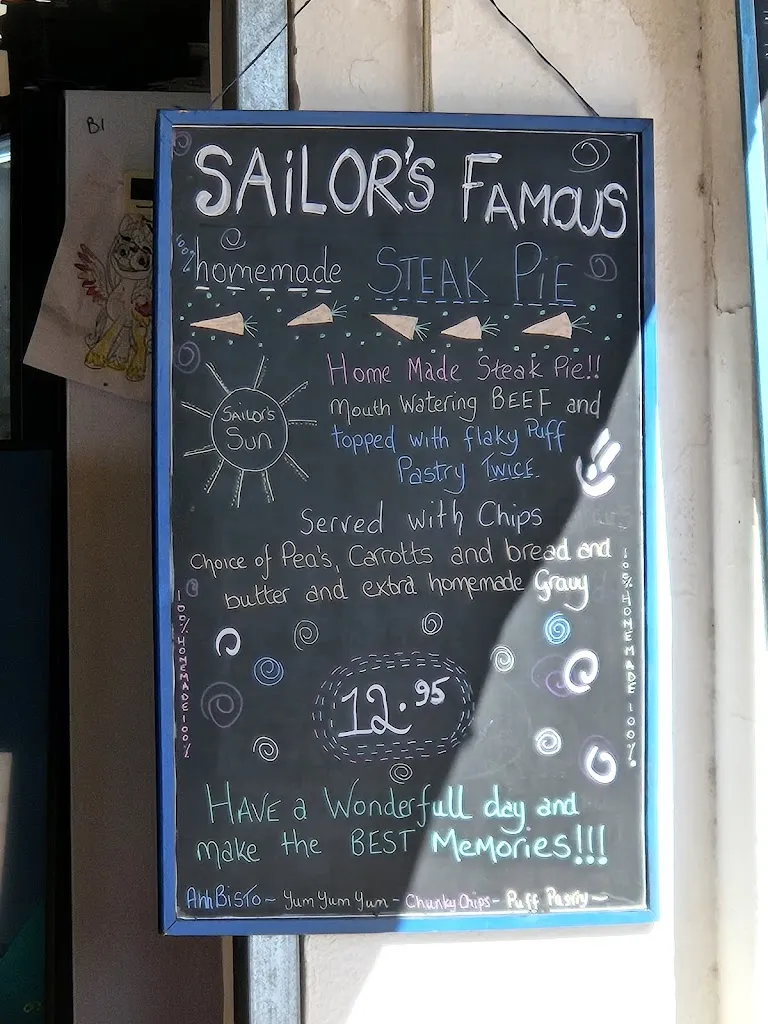 B1
SAiLOR'S FAMOUS
100%
homemade STEAK PiE
Home Made Steak Pie!!
Mouth Watering BEEF and
topped with flaky Puff
Pastry TWICE.
SAiLOR'S
Sun
Served with Chips
Choice of Pea's, Carrotts and bread and
butter and extra homemade Gravy
100% HOMEMADE 100%
100% HOMEMADE 100%
12.95
HAVE a Wonderfull day and
make the BEST MeMoRiES!!!
Ahh BiSTO ~ Yum Yum Yum - Chunky Chips - Puff Pastry ~